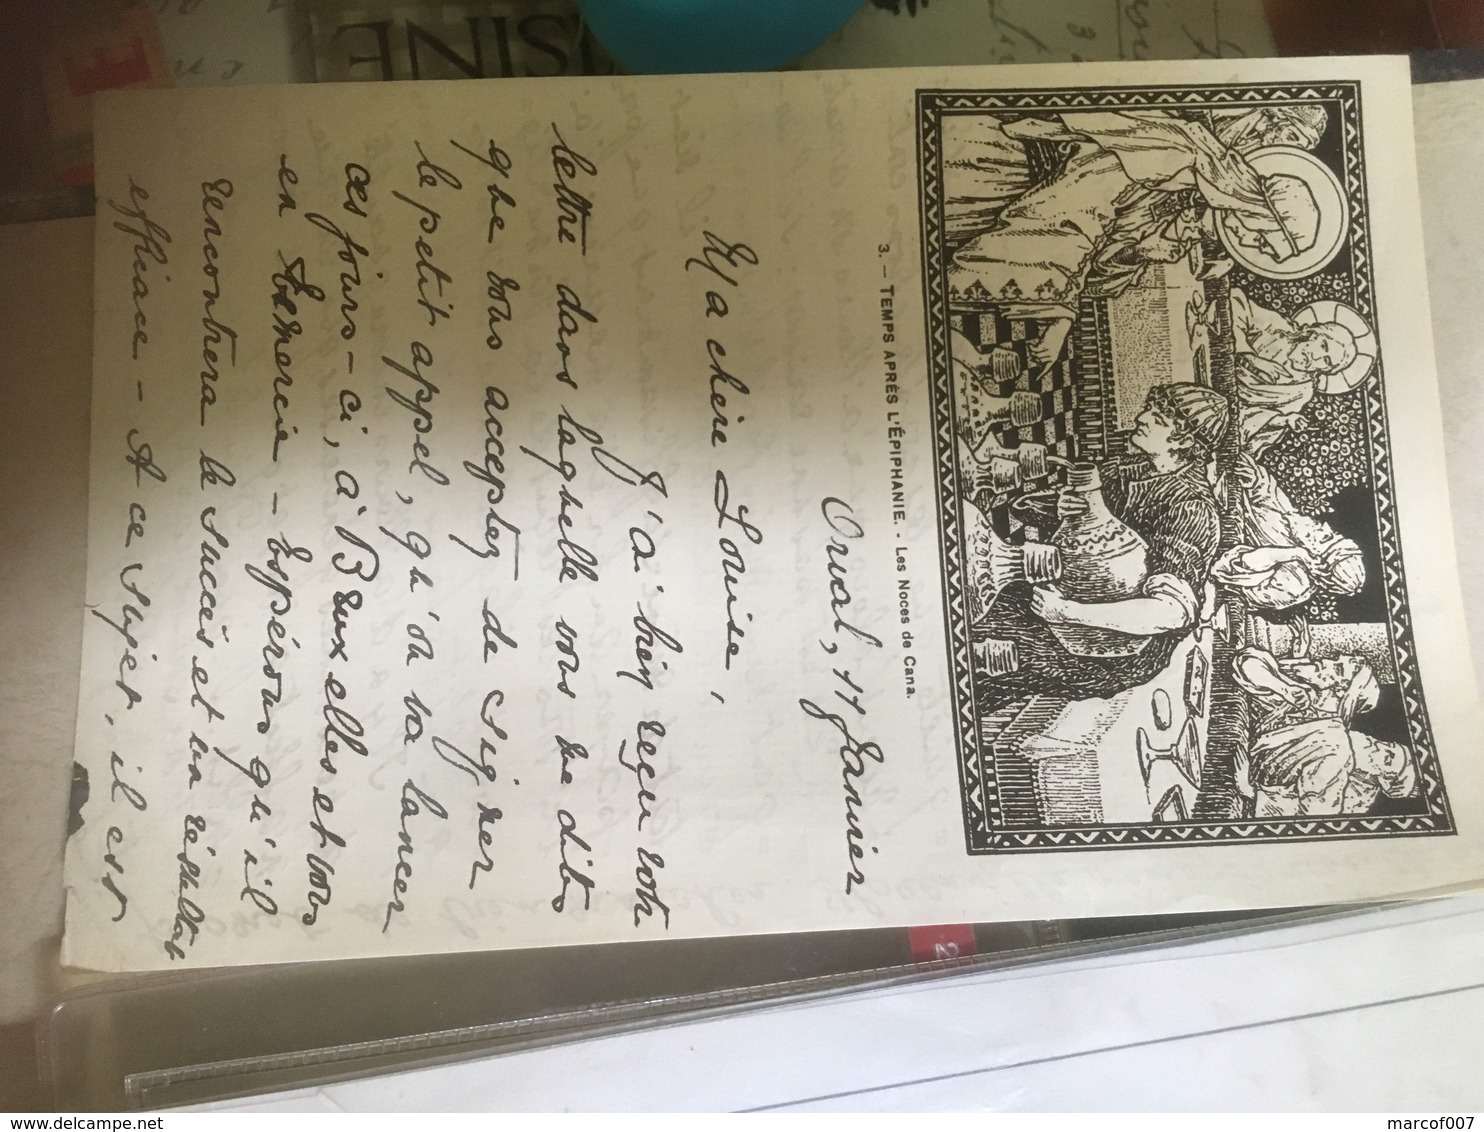 3. – TEMPS APRÈS L'ÉPIPHANIE. - Les Noces de Cana.
Orval, 11 Janvier
Ma chère Louise,
J'ai bien reçu votre
lettre dans laquelle vous me dites
que vous acceptez de signer
le petit appel, qu'on va lancer
ces jours-ci, à Bruxelles et vous
en remercie - Espérons qu'il
rencontrera le succès et un résultat
efficace - A ce sujet, il est
SINE
2
marcof007